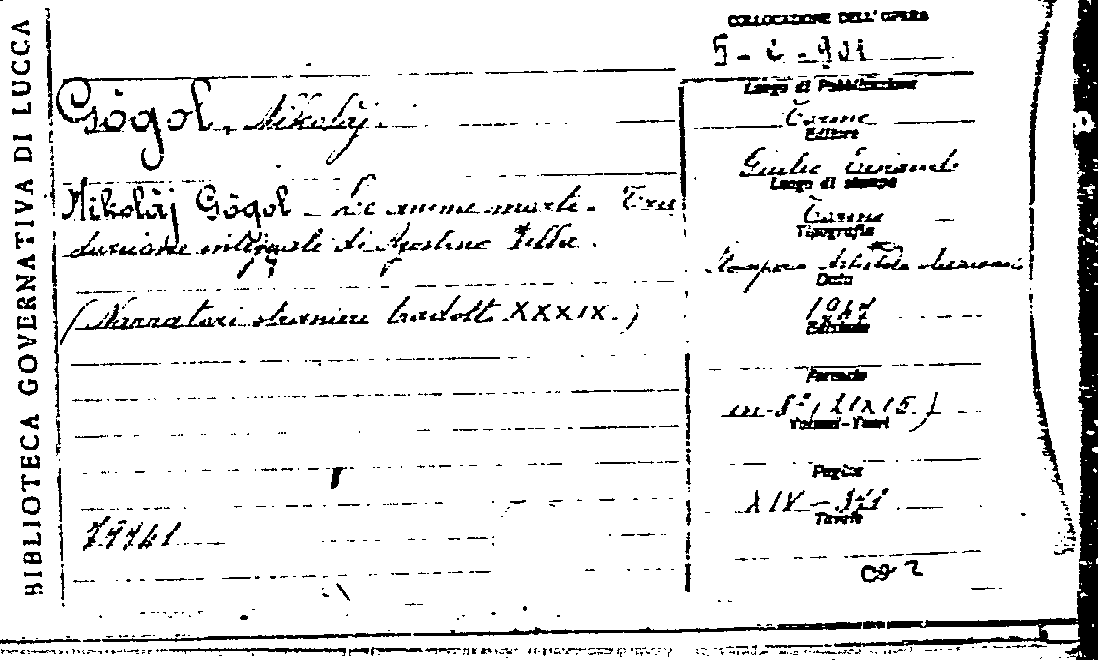 BIBLIOTECA GOVERNATIVA DI LUCCA
Gògol, Nikolàj.
Nikolàj Gògol - Le anime morte. Tra
duzione integrale di Agostino Villa.
(Narratori stranieri tradotti XXXIX.)
COLLOCAZIONE DELL'OPERA
Luogo di Pubblicazione
Torino
Editore
Giulio Einaudi
Luogo di stampa
Torino
Tipografia
Stamperia Artistica Nazionale
Data
1947
Edizione
Formato
in-8° (21x15.)
Volumi-Tomi
Pagine
Tavole